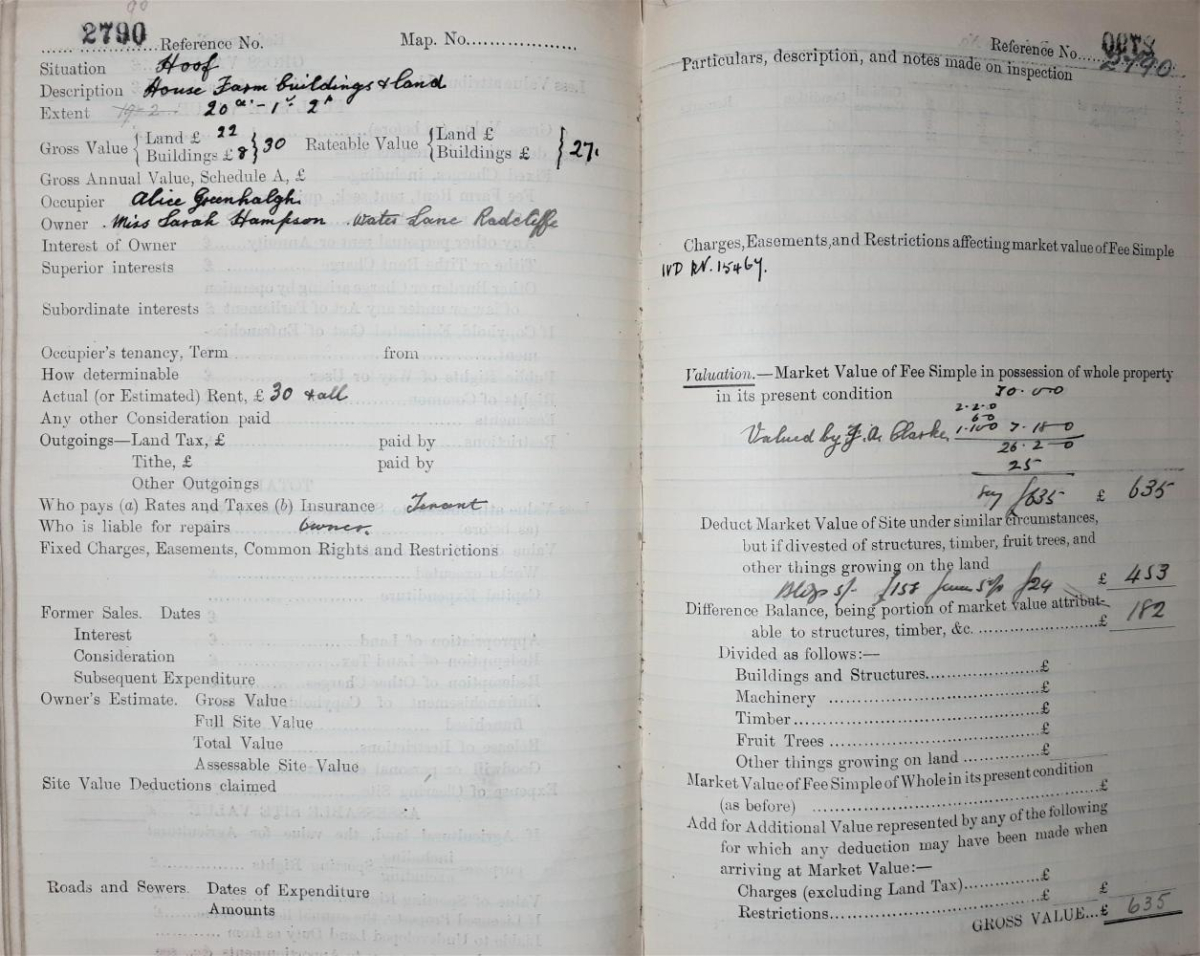 90
2790 Reference No. Map. No.
Situation Hoof
Description House Farm buildings & land
Extent 19-2 20a - 1r 2p
Gross Value { Land £ 22 Buildings £ 8 } 30 Rateable Value { Land £ Buildings £ } 27.
Gross Annual Value, Schedule A, £
Occupier Alice Greenhalgh.
Owner Miss Sarah Hampson Water Lane Radcliffe
Interest of Owner
Superior interests
Subordinate interests
Occupier's tenancy, Term from
How determinable
Actual (or Estimated) Rent, £ 30 & all
Any other Consideration paid
Outgoings—Land Tax, £ paid by
Tithe, £ paid by
Other Outgoings
Who pays (a) Rates and Taxes (b) Insurance Tenant
Who is liable for repairs Owner.
Fixed Charges, Easements, Common Rights and Restrictions
Former Sales. Dates
Interest
Consideration
Subsequent Expenditure
Owner's Estimate. Gross Value
Full Site Value
Total Value
Assessable Site Value
Site Value Deductions claimed
Roads and Sewers. Dates of Expenditure
Amounts
Reference No. 2790
Particulars, description, and notes made on inspection
Charges, Easements, and Restrictions affecting market value of Fee Simple
IVD RN. 15467.
Valuation.—Market Value of Fee Simple in possession of whole property
in its present condition 30.0.0
2.2.0
Valued by J. A. Clarke 7.18.0
26.2.0
25
Say £635 £ 635
Deduct Market Value of Site under similar circumstances,
but if divested of structures, timber, fruit trees, and
other things growing on the land
£158 £24 £ 453
Difference Balance, being portion of market value attribut-
able to structures, timber, &c. £ 182
Divided as follows:—
Buildings and Structures £
Machinery £
Timber £
Fruit Trees £
Other things growing on land £
Market Value of Fee Simple of Whole in its present condition
(as before) £
Add for Additional Value represented by any of the following
for which any deduction may have been made when
arriving at Market Value:—
Charges (excluding Land Tax) £
Restrictions £ £
GROSS VALUE...£ 635